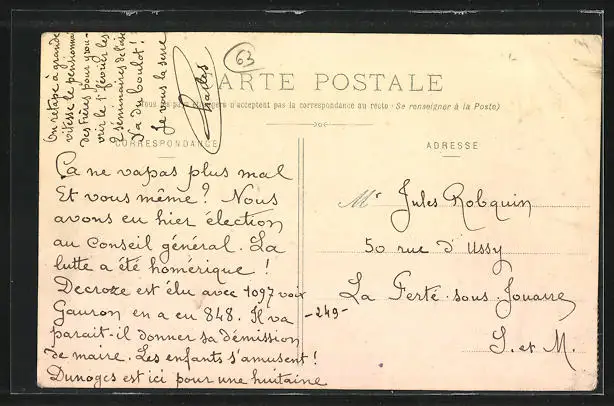 On retape à grande
vitesse le pensionnat
des Frères pour y rou-
vrir le 1er février les
2 séminaires de l'
Y'a du boulot !
Je vous la serre
Challes
63
CARTE POSTALE
Tous les pays étrangers n'acceptent pas la correspondance au recto (Se renseigner à la Poste)
CORRESPONDANCE
Ça ne va pas plus mal
Et vous même ? Nous
avons eu hier élection
au Conseil général. La
lutte a été homérique !
Decroze est élu avec 1097 voix
Gauron en a eu 848. Il va
parait-il donner sa démission
de maire. Les enfants s'amusent !
Dunoges est ici pour une huitaine
-249-
ADRESSE
Mr Jules Robquin
50 rue d'Ussy
La Ferté-sous-Jouarre
S. et M.